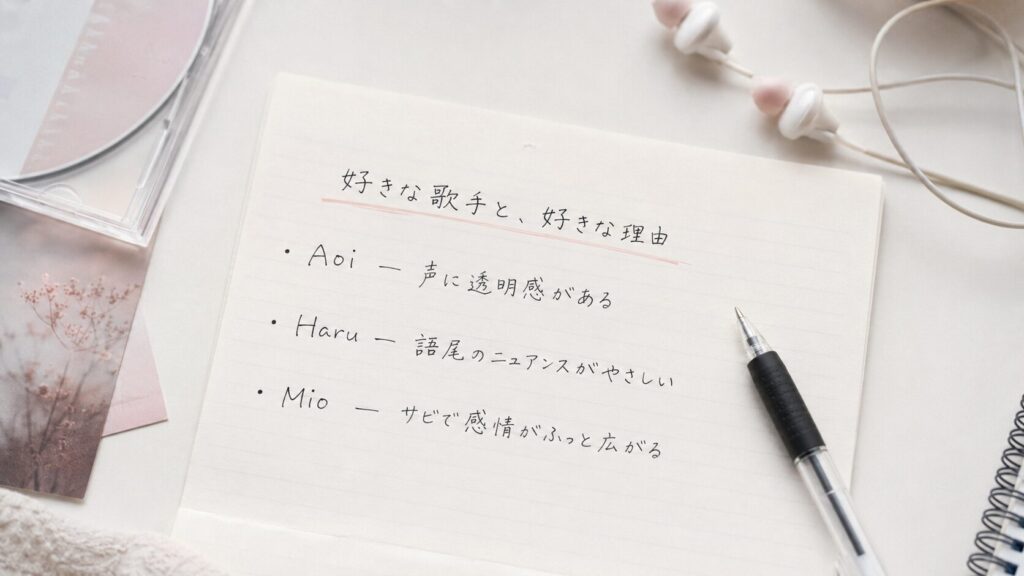 好きな歌手と、好きな理由
・Aoi — 声に透明感がある
・Haru — 語尾のニュアンスがやさしい
・Mio — サビで感情がふっと広がる